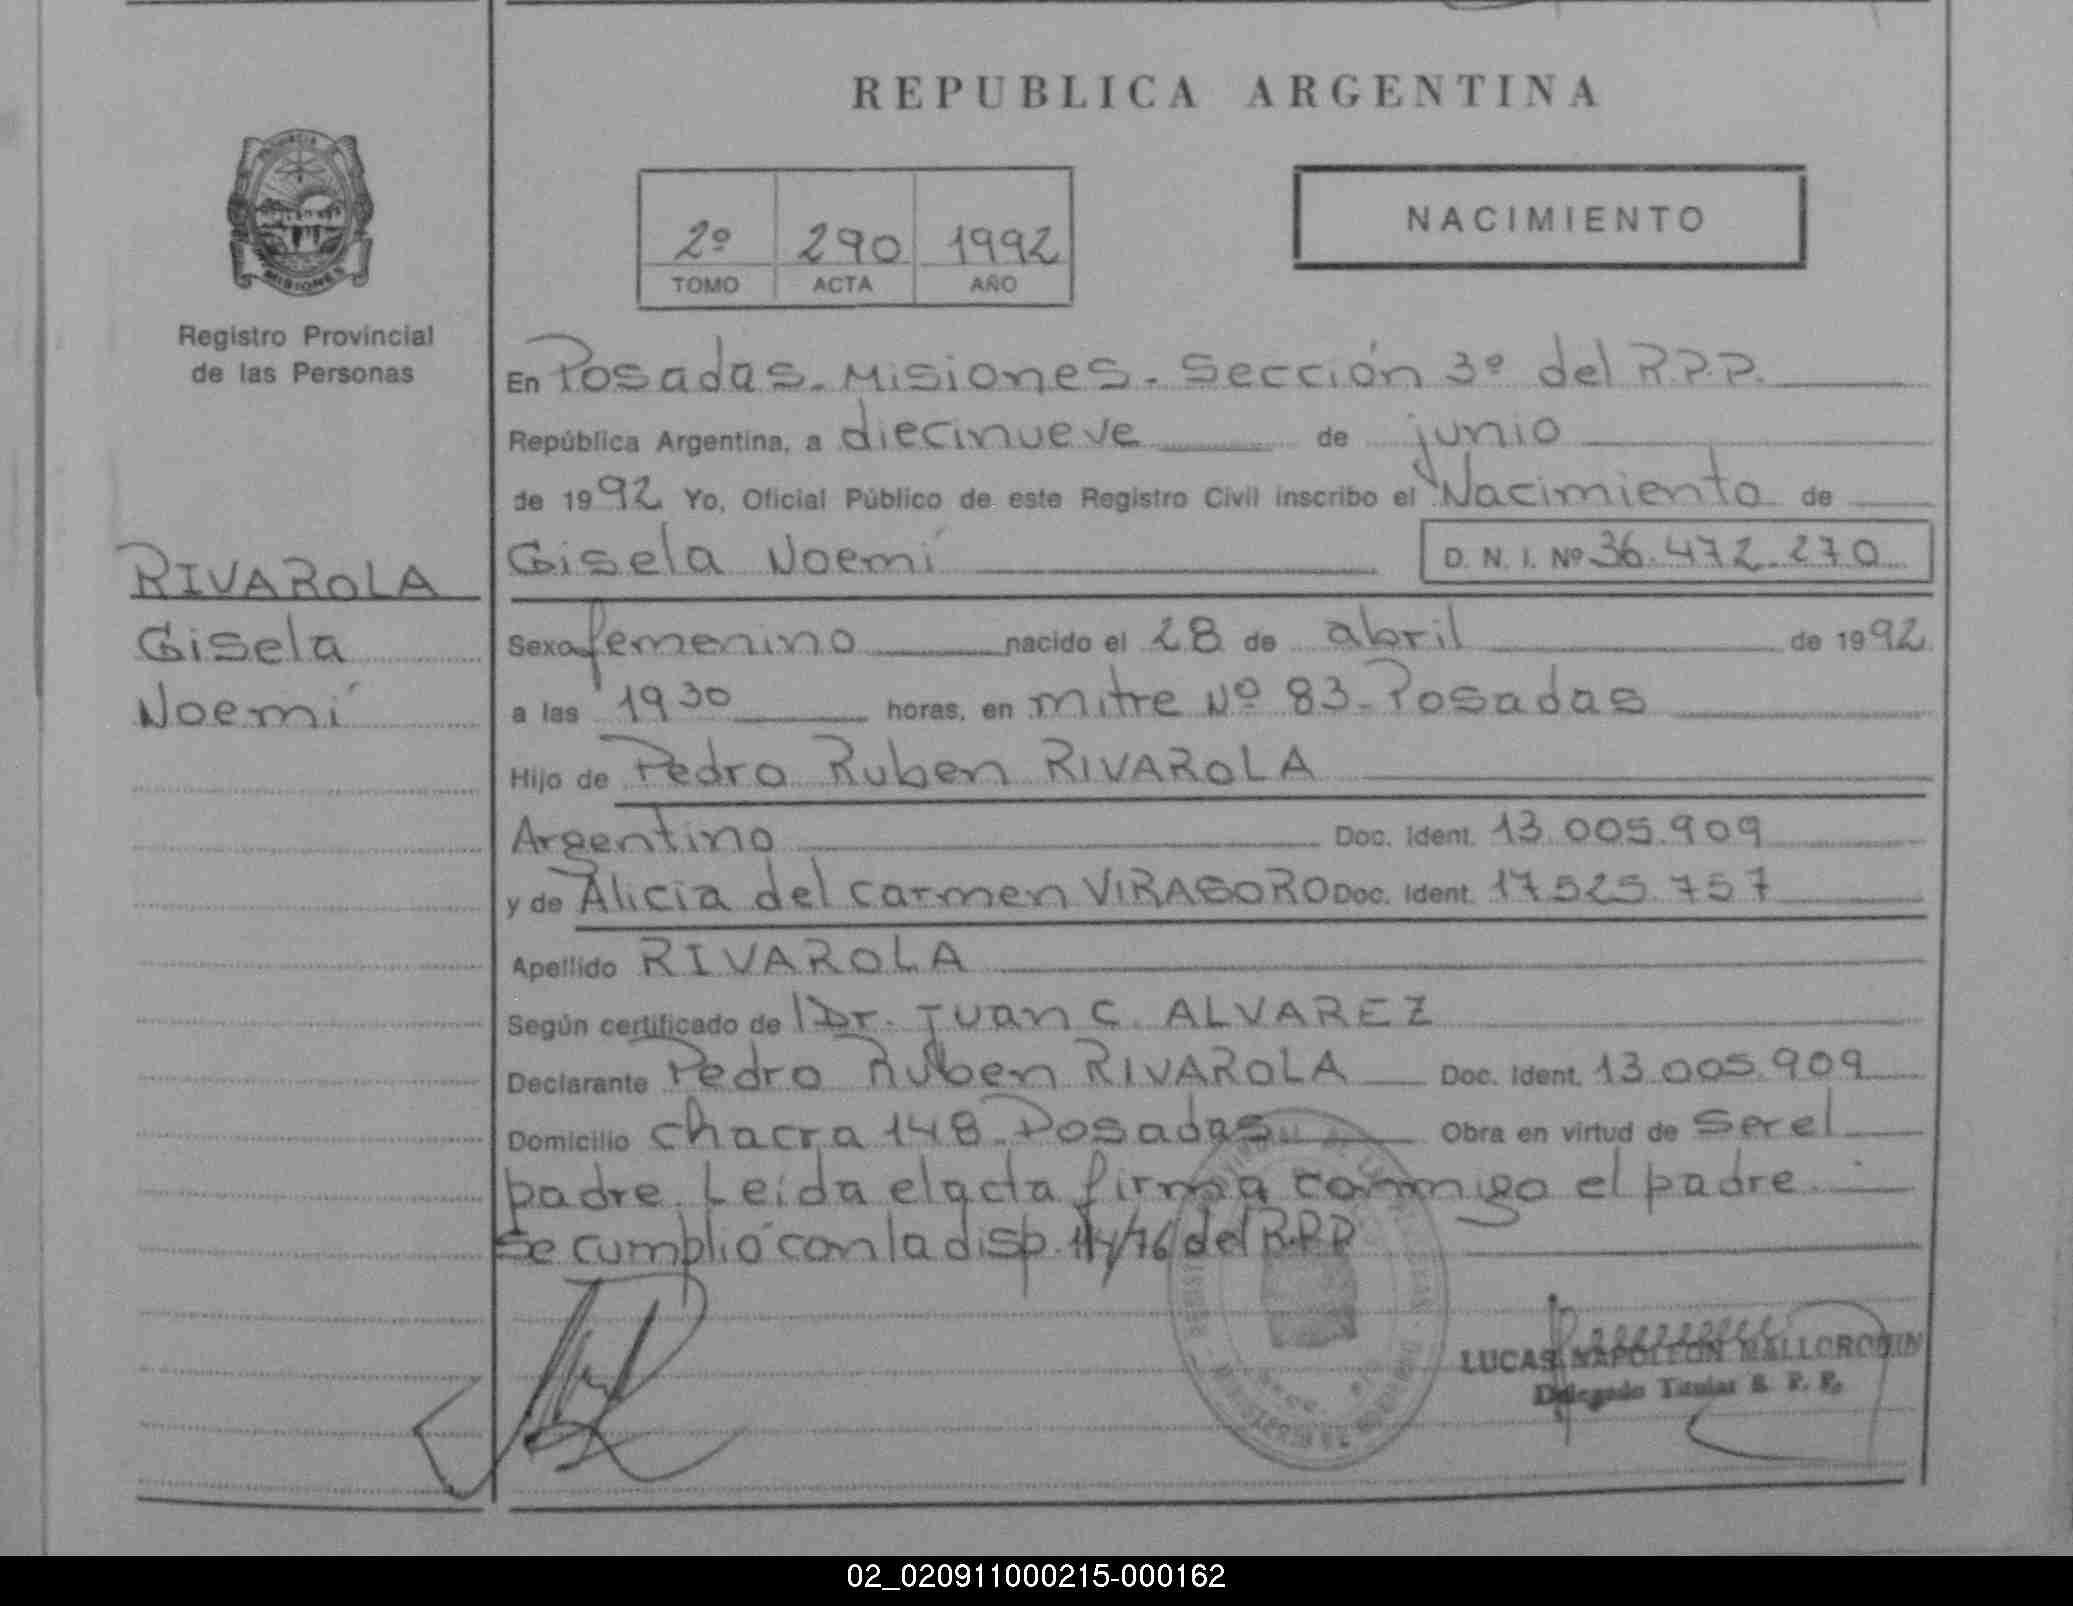 REPUBLICA ARGENTINA
MISIONES
Registro Provincial
de las Personas
RIVAROLA
Gisela
Noemí
2º 290 1992
TOMO ACTA AÑO
NACIMIENTO
En Posadas. Misiones. Sección 3º del R.P.P.
República Argentina, a diecinueve de junio
de 1992 Yo, Oficial Público de este Registro Civil inscribo el Nacimiento de
Gisela Noemí D. N. I. Nº 36.472.270
Sexo femenino nacido el 28 de abril de 1992
a las 19 30 horas, en mitre Nº 83. Posadas
Hijo de Pedro Ruben RIVAROLA
Argentino Doc. Ident. 13.005.909
y de Alicia del carmen VIRASORO Doc. Ident. 17.525.757
Apellido RIVAROLA
Según certificado de Dr. Juan C. ALVAREZ
Declarante Pedro Ruben RIVAROLA Doc. Ident. 13.005.909
Domicilio chacra 148. Posadas Obra en virtud de Ser el
padre. Leída el acta firma conmigo el padre.
Se cumplió con la disp. /76 del R.P.P
LUCAS NAPOLEON
Delegado Titular R. P. P.
02_020911000215-000162